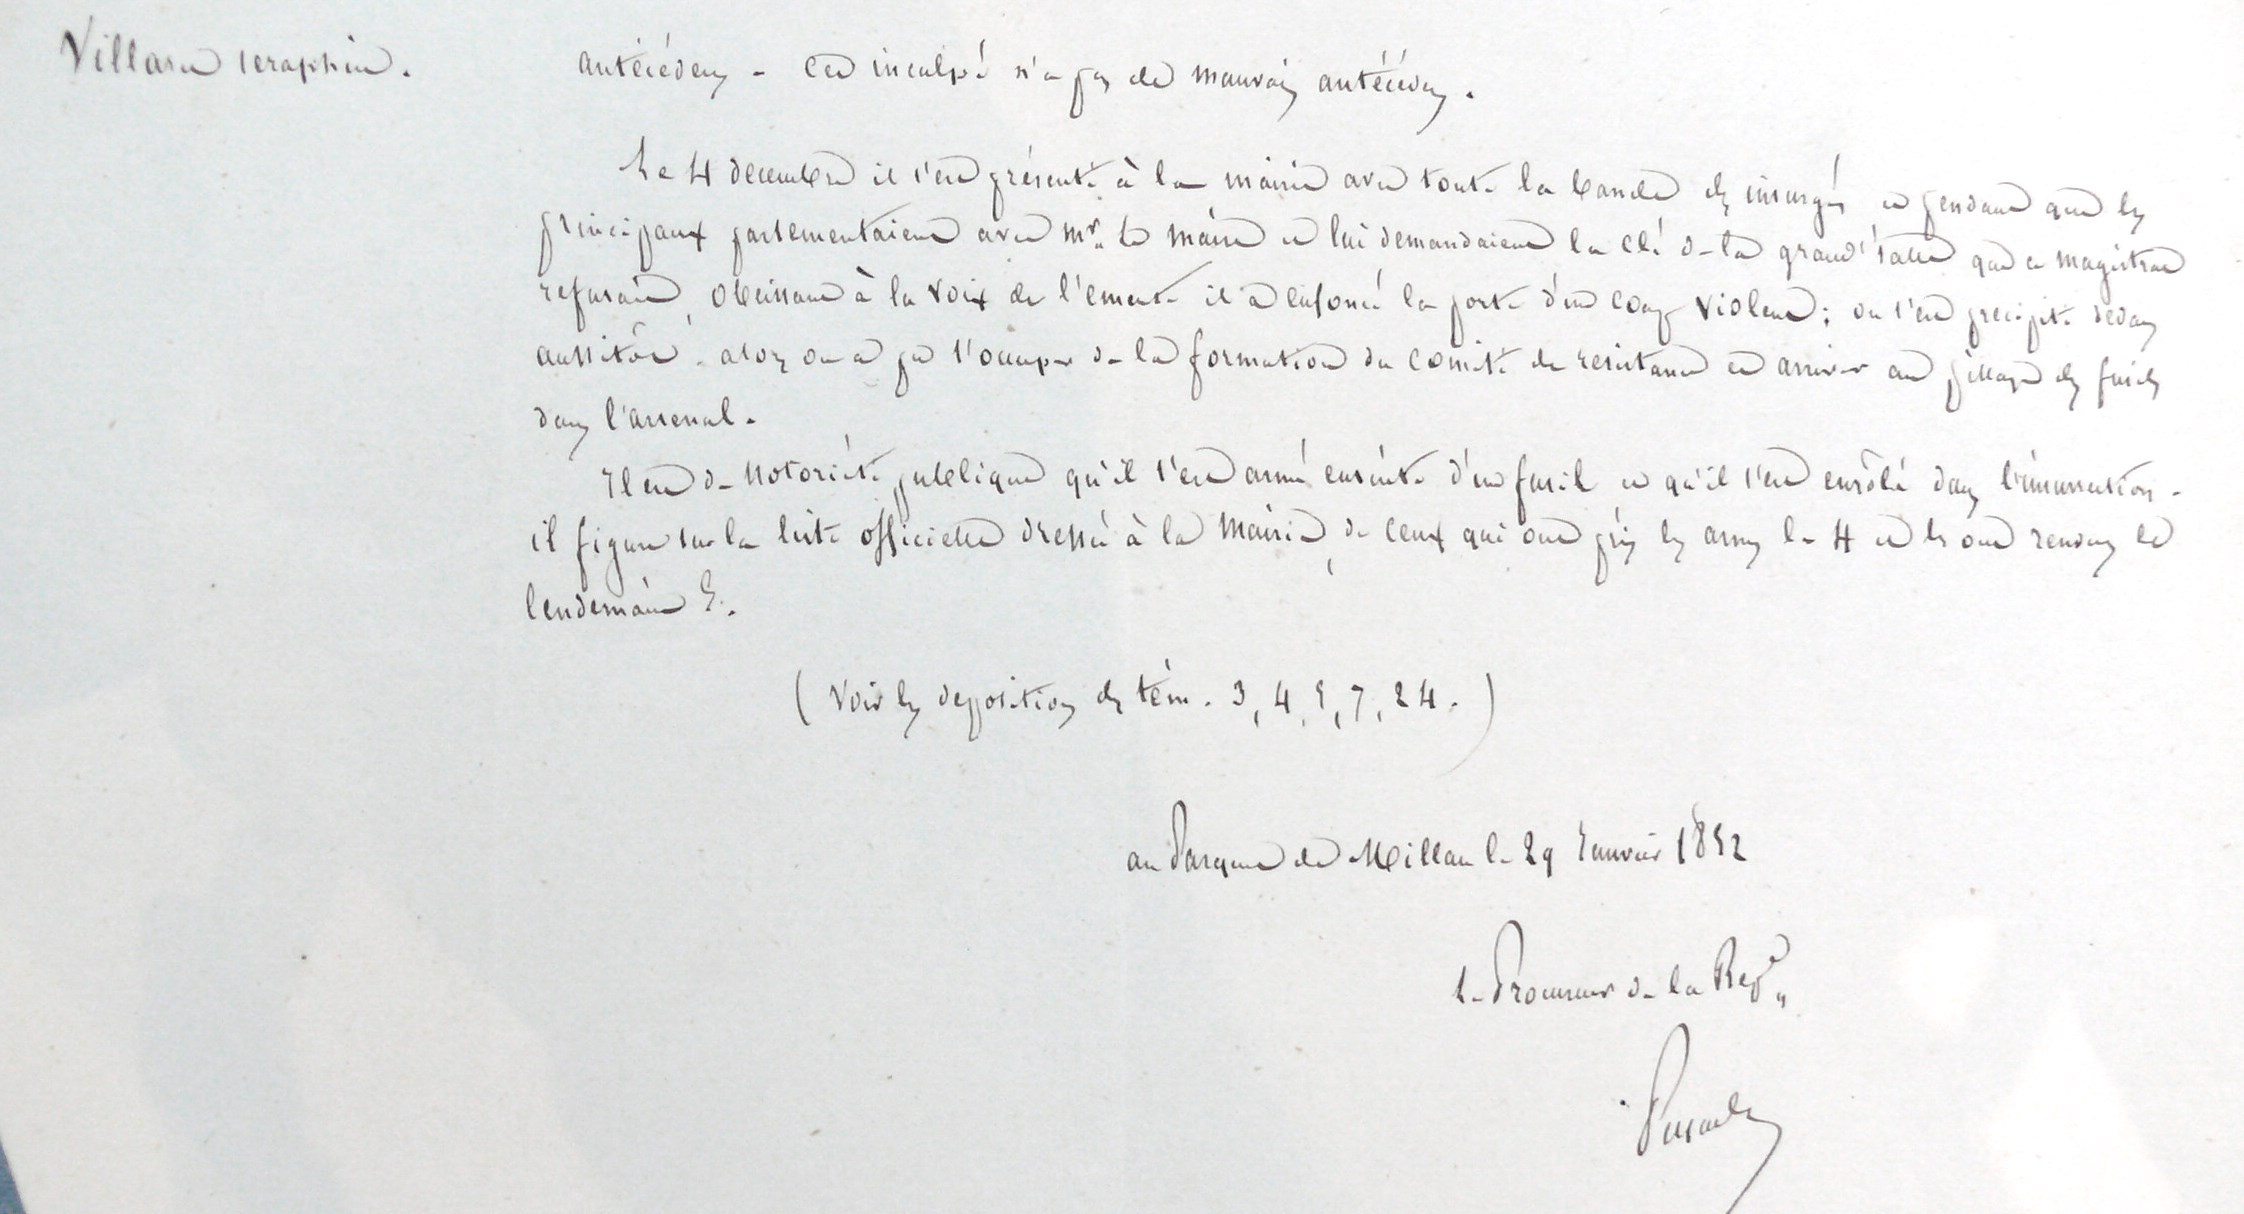 Villaret seraphin.
antécédens - Cet inculpé n'a pas de mauvais antécédens.
Le 4 decembre il s'est présenté à la mairie avec toute la bande des insurgés et pendant que les
principaux parlementaient avec mr. le maire et lui demandaient la clé de la grand'salle que ce magistrat
refusait, obeissant à la voix de l'emeute il a enfoncé la porte d'un coup violent; on s'est precipité dedans
aussitôt. alors on a pu s'occuper de la formation du comité de resistance et arriver au pillage des fusils
dans l'arsenal.
Il est de notoriété publique qu'il s'est armé ensuite d'un fusil et qu'il s'est enrôlé dans l'insurrection.
il figure sur la liste officielle dressée à la Mairie, de ceux qui ont pris les armes le 4 et les ont rendues le
lendemain 5.
(Voir les depositions des tém. 3, 4, 5, 7, 24.)
au Parquet de Millau le 29 Janvier 1852
le Procureur de la Repe